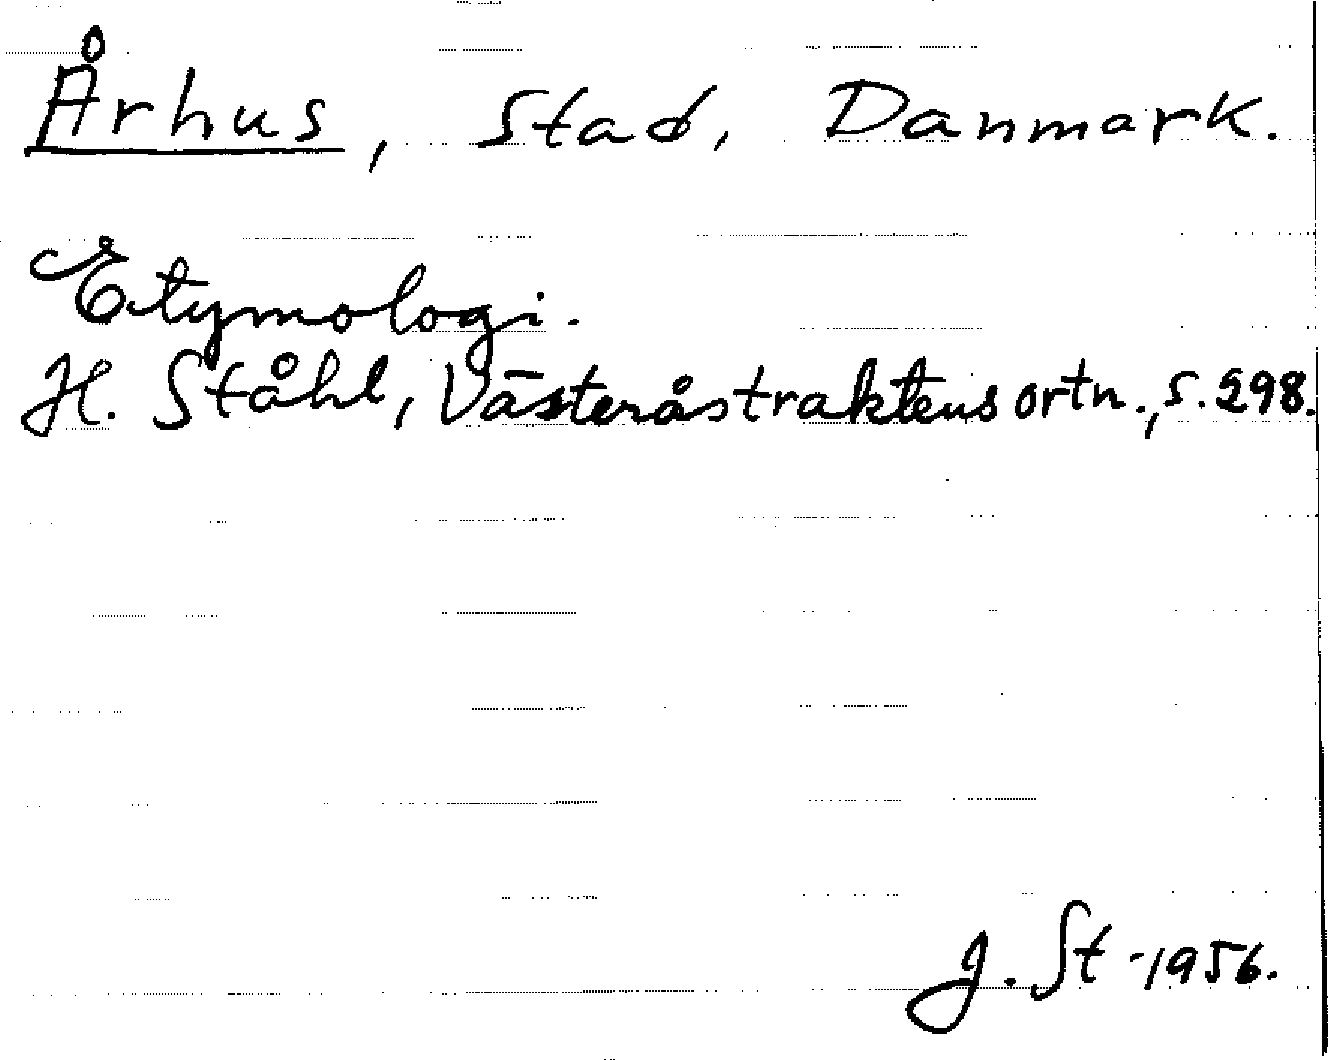 Århus, Stad, Danmark.
Etymologi.
H. Ståhl, Västeråstraktens ortn., s. 298.
J. St 1956.